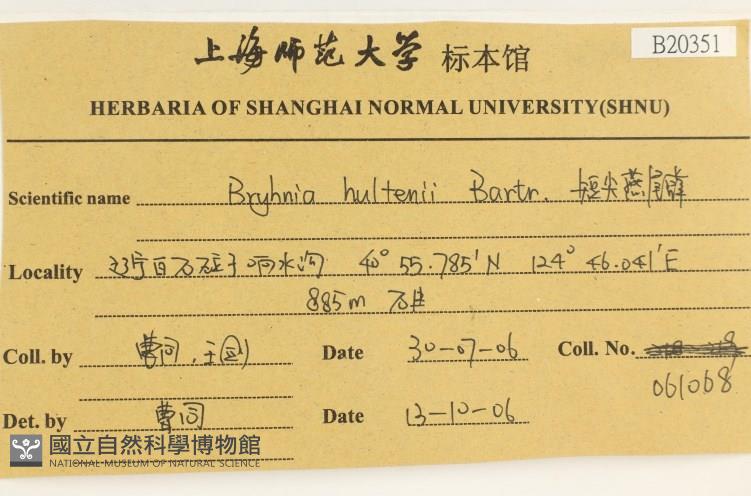 上海师范大学 标本馆 B20351
HERBARIA OF SHANGHAI NORMAL UNIVERSITY(SHNU)
Scientific name Bryhnia hultenii Bartr. 短尖燕尾藓
Locality 辽宁白石砬子响水沟 40° 55.785'N 124° 46.041'E
885m
Coll. by 曹同, 于 Date 30-07-06 Coll. No.
061068
Det. by 曹同 Date 13-10-06
國立自然科學博物館
NATIONAL MUSEUM OF NATURAL SCIENCE